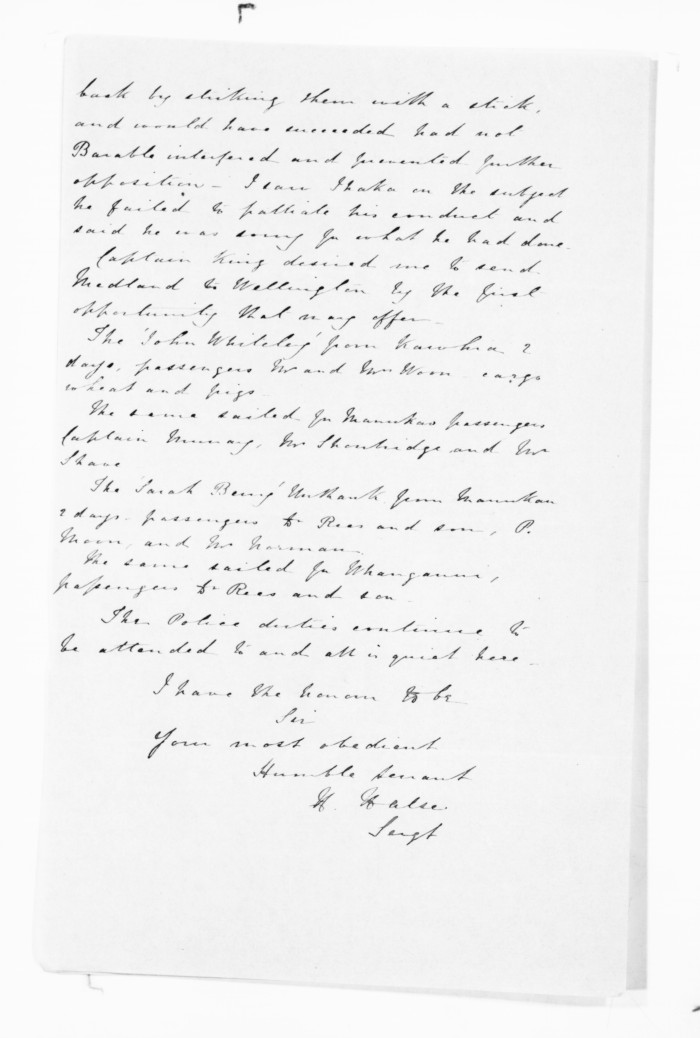 back by striking them with a stick,
and would have succeeded had not
Barable interfered and prevented further
opposition - I saw Ihaka on the subject
he failed to palliate his conduct and
said he was sorry for what he had done -
Captain King desired me to send
Medland to Wellington by the first
opportunity that may offer -
The 'John Whiteley' from Kawhia 2
days, passengers Mr and Mrs Woon - cargo
wheat and pigs -
The same sailed for Manukau passengers
Captain Murray, Mr Shoubridge and Mr
Shave
The 'Sarah Berry' Unthank from Manukau
2 days - passengers Dr Rees and son, P.
Moon, and Mr Norman.
The same sailed for Whanganui,
passengers Dr Rees and son -
The Police duties continue to
be attended to and all is quiet here -
I have the honour to be
Sir
Your most obedient
Humble servant
H. Halse.
Sergt